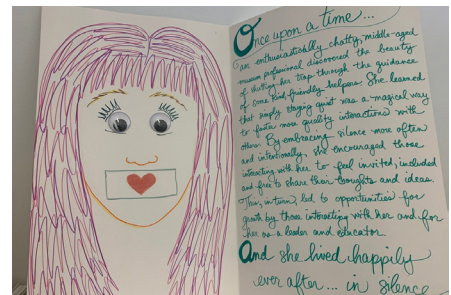 Once upon a time...
an enthusiastically chatty, middle-aged
museum professional discovered the beauty
of shutting her trap through the guidance
of some kind, friendly helpers. She learned
that simply staying quiet was a magical way
to foster more quality interactions with
others. By embracing silence more often
and intentionally, she encouraged those
interacting with her to feel invited, included
and free to share their thoughts and ideas.
This, in turn, led to opportunities for
growth by those interacting with her and for
her as a leader and educator.
And she lived happily
ever after... in silence